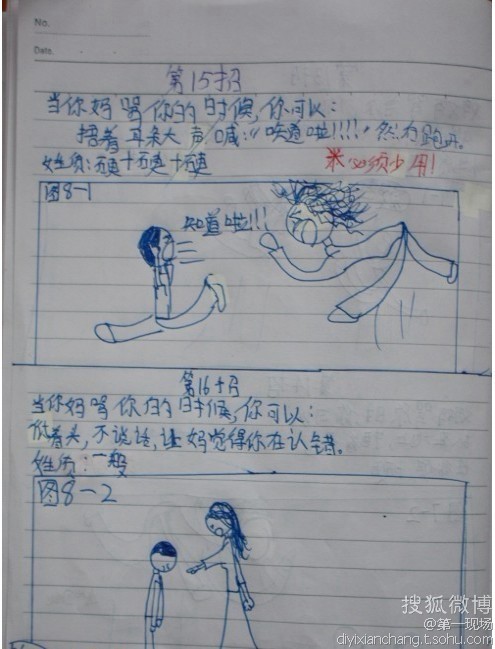 No.
Date.
第15招
当你妈骂你的时候,你可以:
捂着耳朵大声喊:“知道啦!!!!”然后跑开。
姓质:
必须少用!
图8-1
知道啦!!!
第16招
当你妈骂你的时候,你可以:
低着头,不说话,让妈觉得你在认错。
姓质:一般
图8-2
搜狐微博
@第一现场
diyixianchang.t.sohu.com